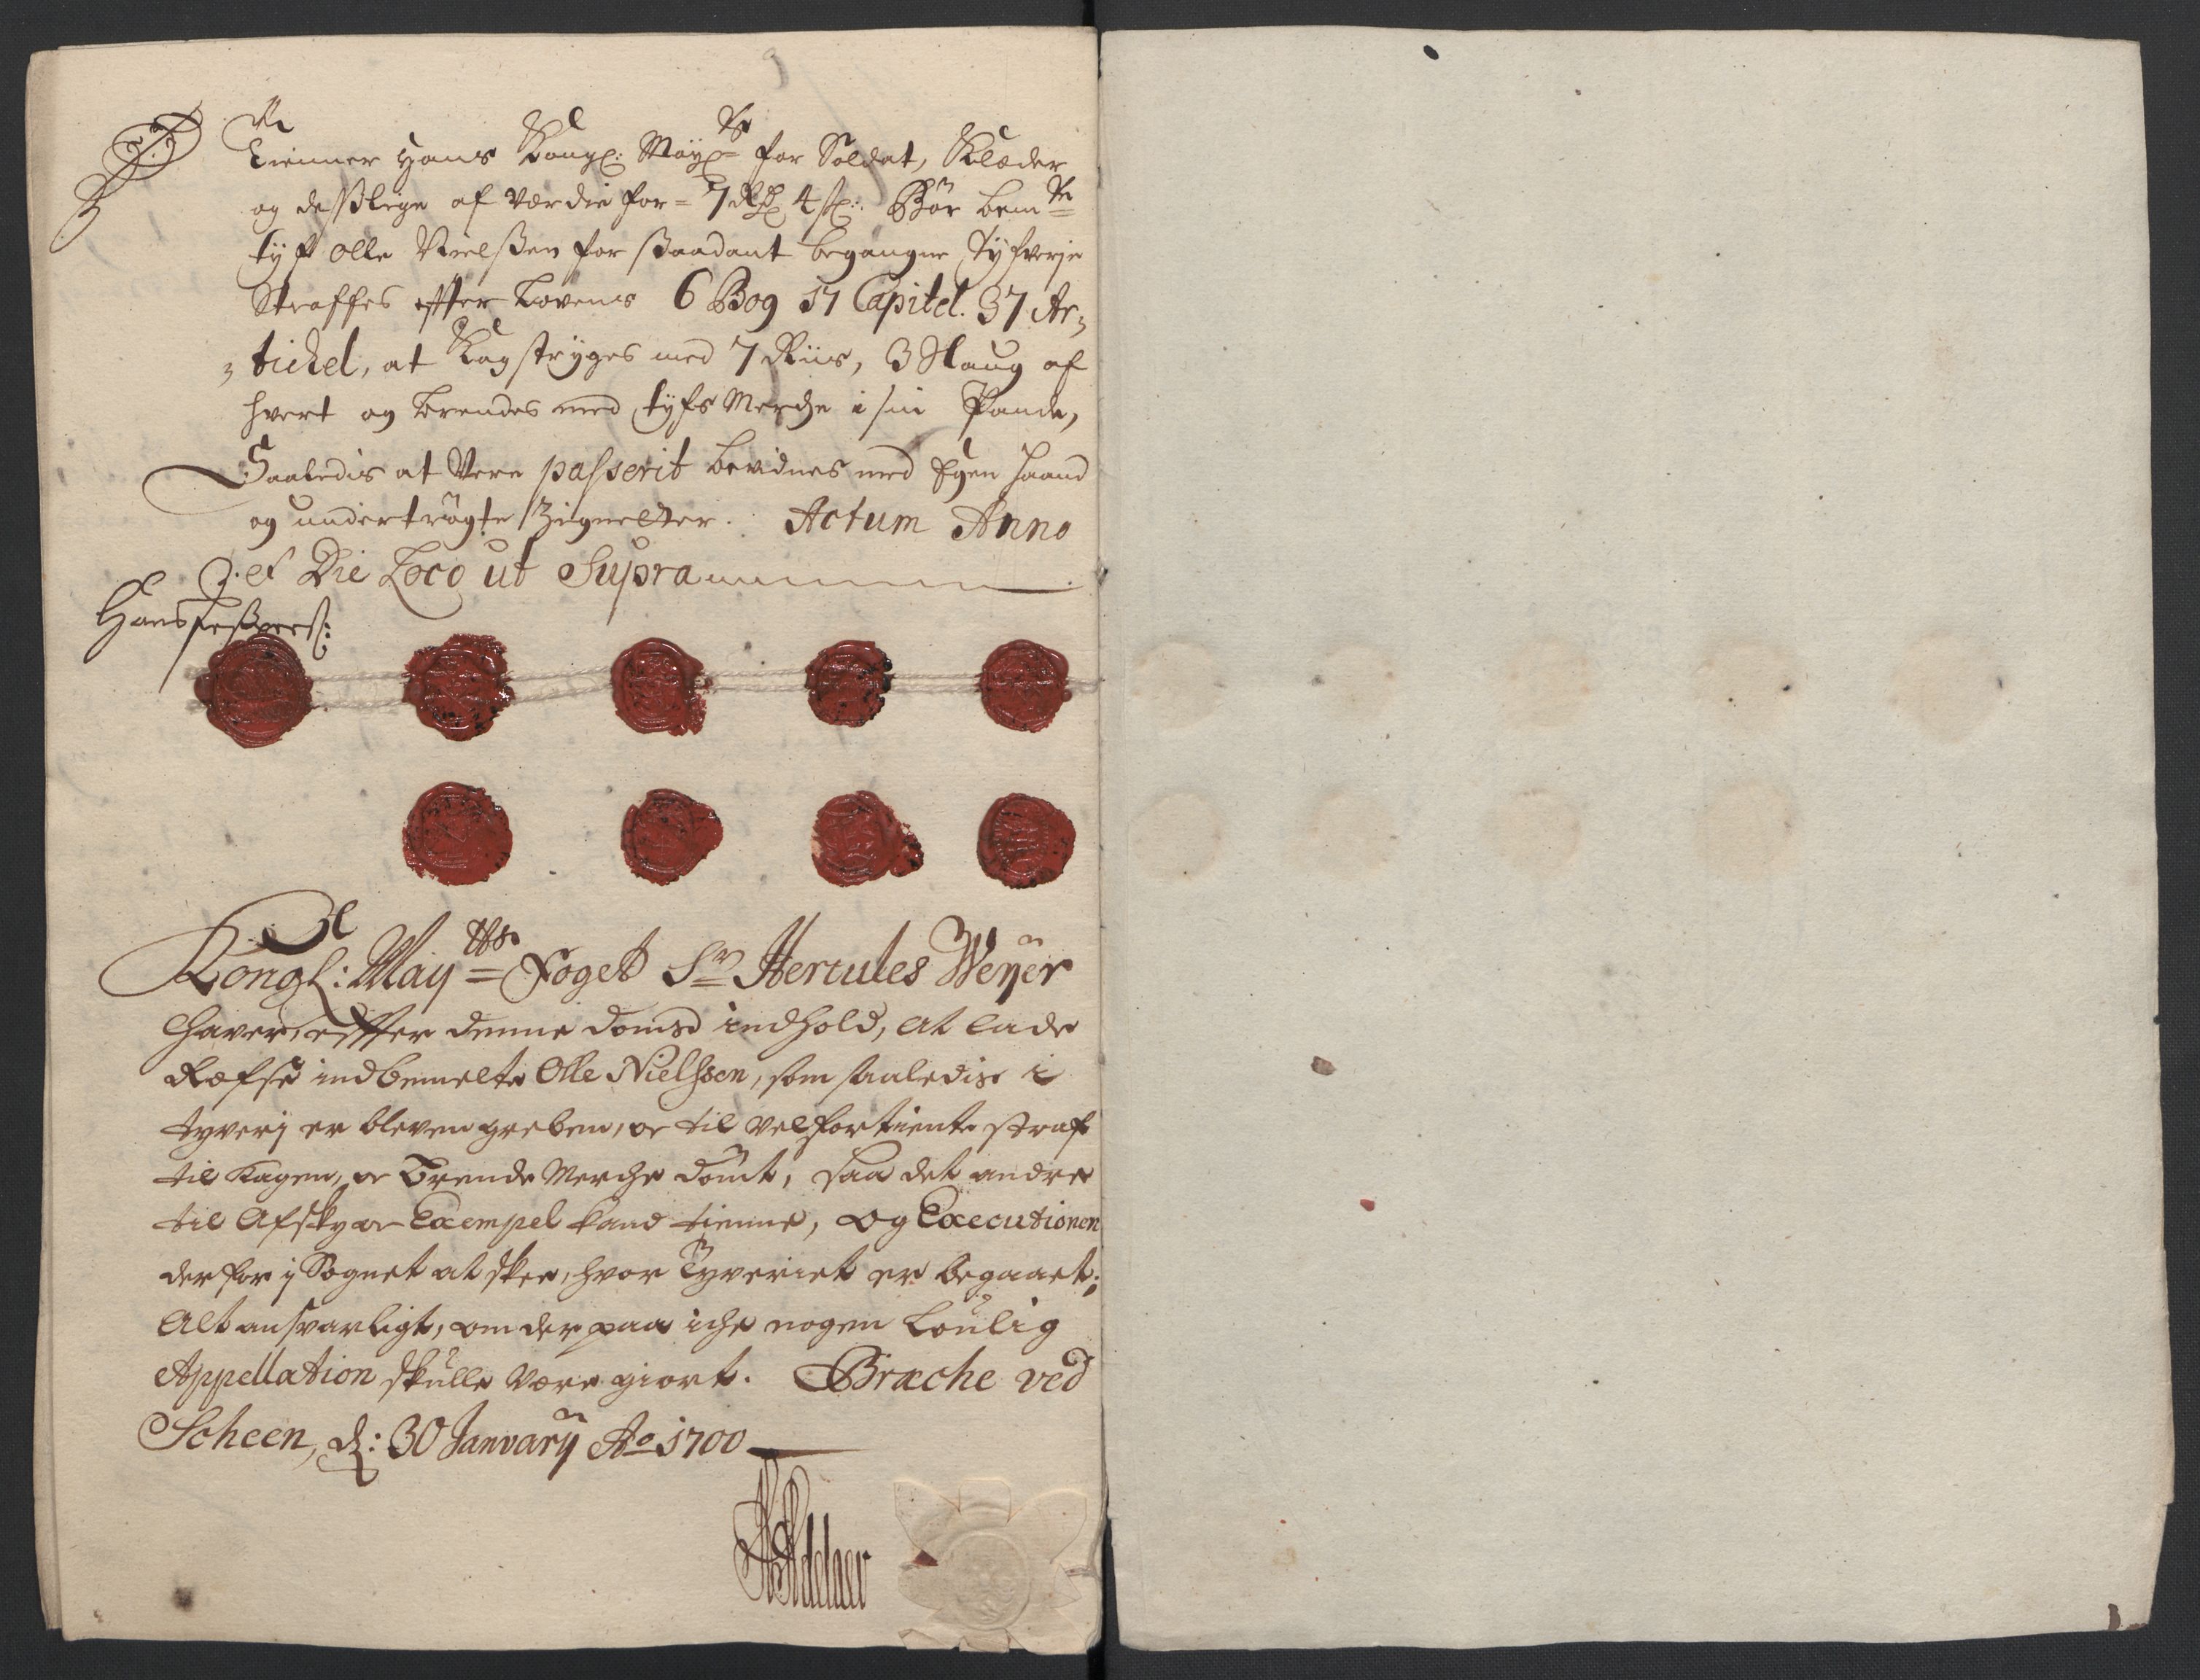 tienner hans Kongl: Mayts for Soldat, Klæder
og desslige af Værdie for = 7 Rdl 4 sk: Bör bemte
tÿf Olle Nielßen for ßaadant begangne Tÿfverje
Straffes effter Lovens 6 Bog 17 Capitel. 37 Ar-
tichel, at Kagstrÿges med 7 Riis, 3 Slaug af
hvert og brendes med tÿfs Merche i sin Pande,
Saaledis at Vere passerit bevidnes med Egen haand
og undertrögte Zigneter. Actum Anno
et Die Loco ut Supra
Hans
Kongl: May tts Foget Sr Hercules Weÿer
haver effter denne domss indhold, at lade
Ræfse indbemelte Olle Nielssen, som saaledis i
tyverj er bleven greben, oc til velfortiente straf
til Kagen, oc Brende Merche dömt, saa det andre
til Afsky oc Exempel kand tienne, og Executionen
derfor i Sognet at skee, hvor Tyveriet er begaaet;
Alt ansvarligt, om der paa iche nogen Loulig
Appellation skulle være giort. Bræche ved
Scheen, d: 30 Januarÿ Ao 1700
Adelaer